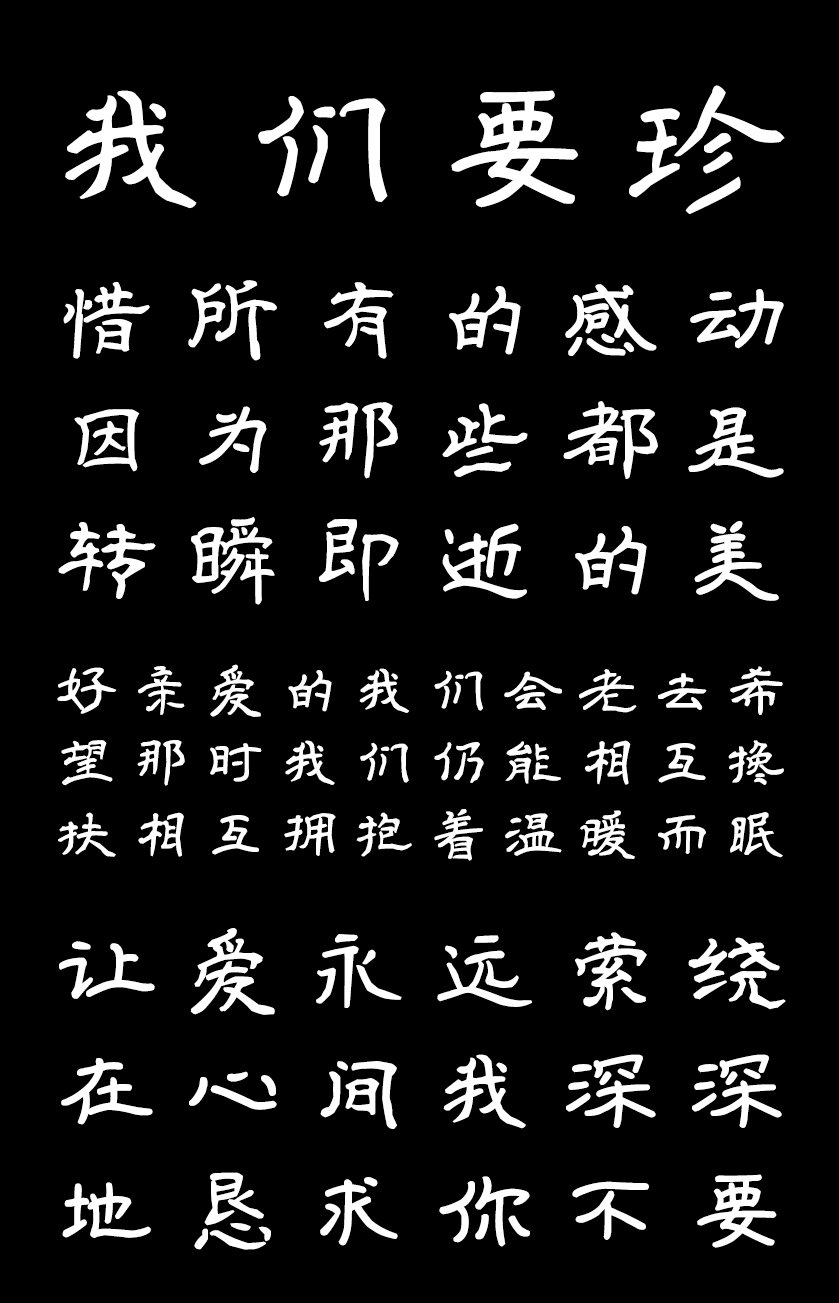 我们要珍
惜所有的感动
因为那些都是
转瞬即逝的美
好亲爱的我们会老去希
望那时我们仍能相互搀
扶相互拥抱着温暖而眠
让爱永远萦绕
在心间我深深
地恳求你不要